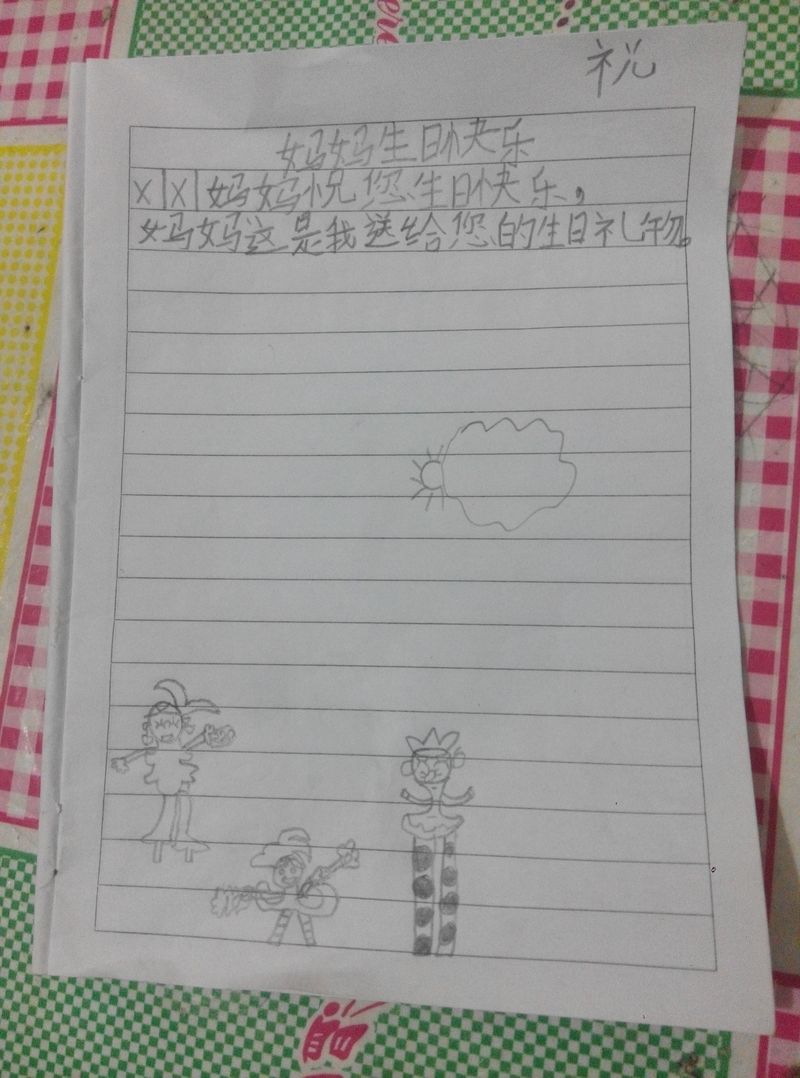 祝
妈妈生日快乐
X X 妈妈祝您生日快乐，
妈妈这是我送给您的生日礼物。